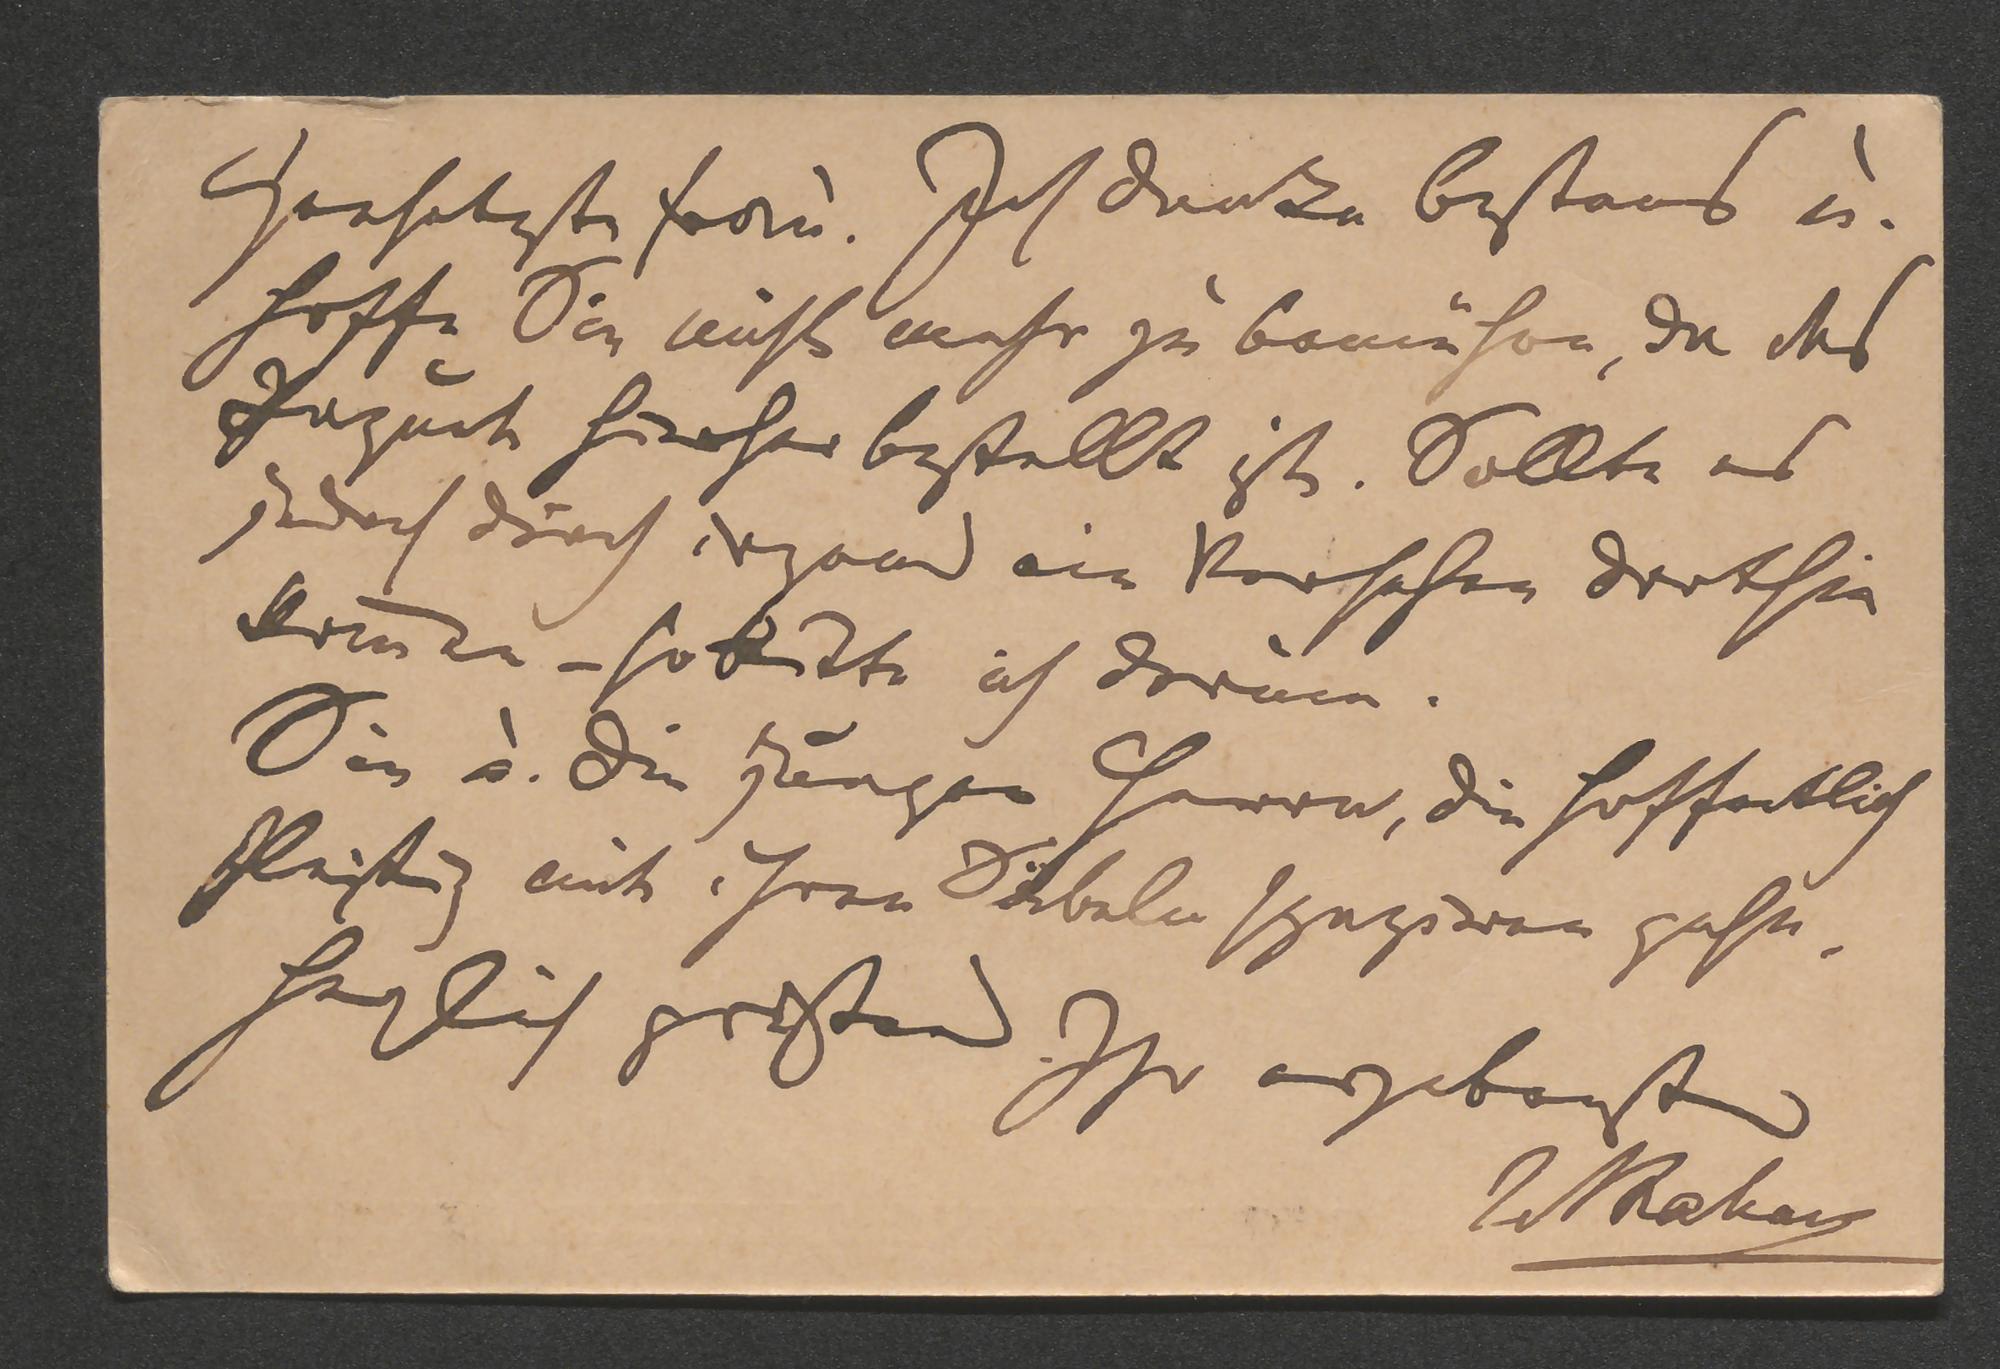 Hochgeehrteste Frau. Ich danke bestens u.
hoffe Sie nicht mehr zu bemühen, da das
Gepäck hierher bestellt ist. Sollte es
jedoch durch irgend ein Versehen dorthin
kommen – so bitte ich darum.
Sie u. die jungen Herren, die hoffentlich
fleißig mit ihren Säbeln spazieren gehn,
herzlich grüßend Ihr ergebenster